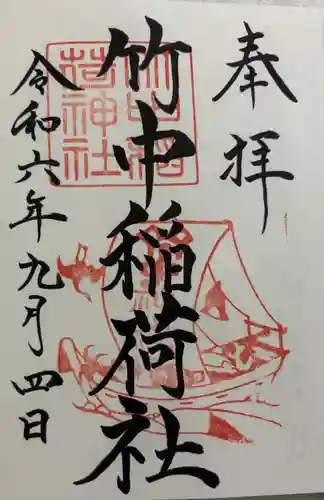 奉拝
竹中稲荷社
竹中稲荷神社
令和六年九月四日